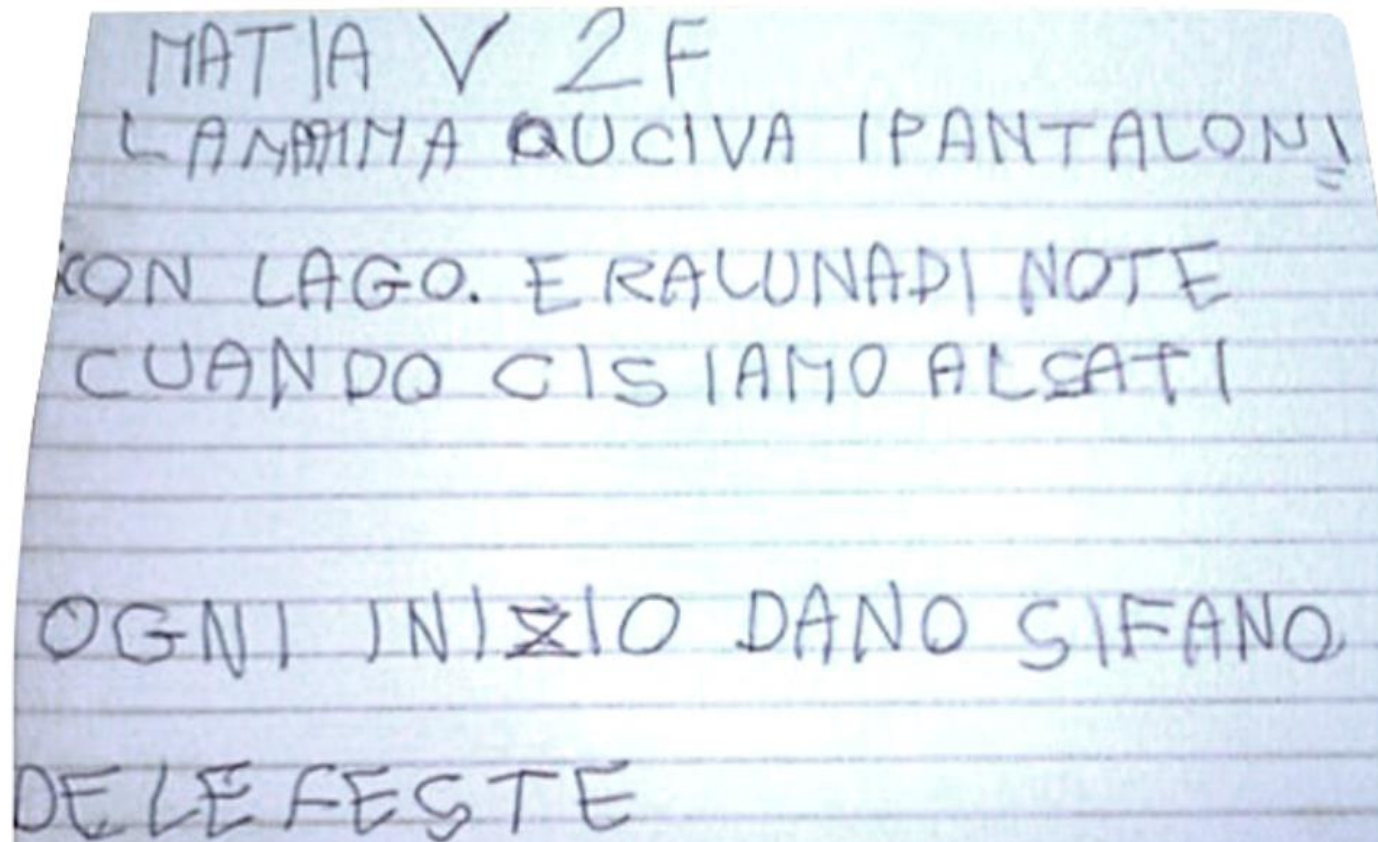 MATIA V 2F
LAMAMMA QUCIVA IPANTALONI
KON LAGO. ERALUNADI NOTE
CUANDO CISIAMO ALSATI
OGNI INIZIO DANO SIFANO
DELE FESTE